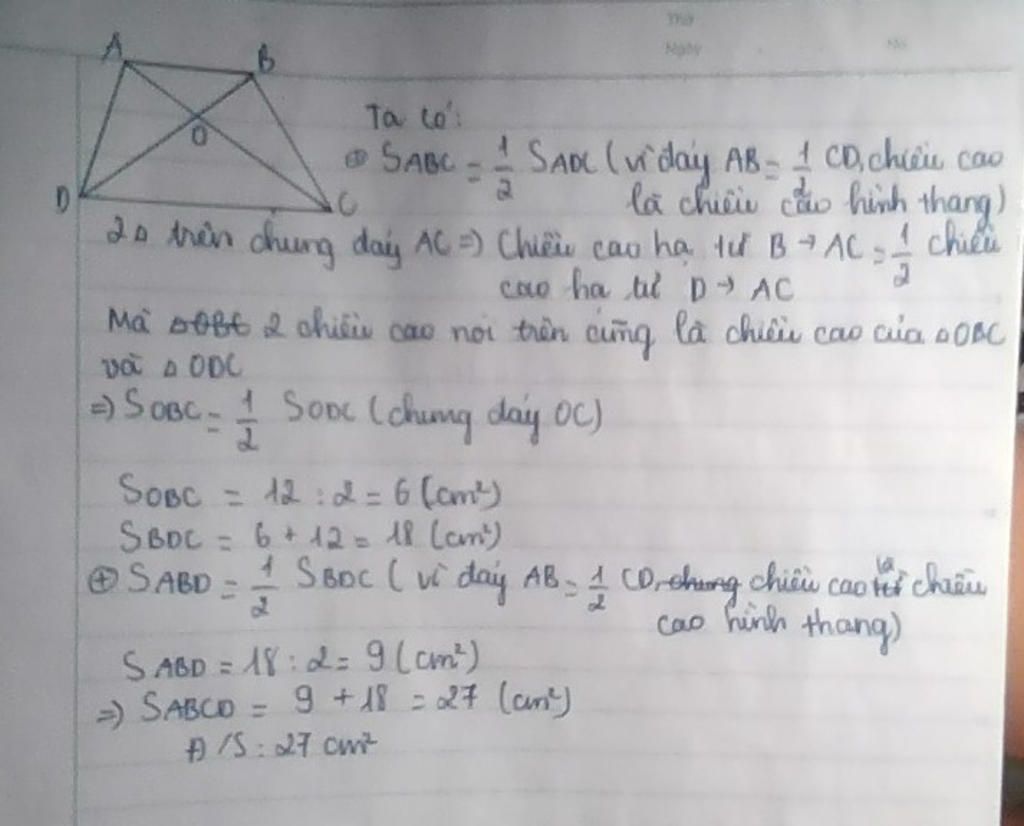 Thứ
Ngày
No
A
B
O
D
C
Ta có:
⊕ SABC = 1/2 SADC (vì đáy AB = 1/2 CD, chiều cao
là chiều cao hình thang)
2△ trên chung đáy AC => Chiều cao hạ từ B → AC = 1/2 chiều
cao hạ từ D → AC
Mà △OBC 2 chiều cao nói trên cũng là chiều cao của △OBC
và △ODC
=> SOBC = 1/2 SODC (chung đáy OC)
SOBC = 12 : 2 = 6 (cm²)
SBDC = 6 + 12 = 18 (cm²)
⊕ SABD = 1/2 SBDC (vì đáy AB = 1/2 CD, chung chiều cao là chiều
cao hình thang)
SABD = 18 : 2 = 9 (cm²)
=> SABCD = 9 + 18 = 27 (cm²)
Đ/S: 27 cm²